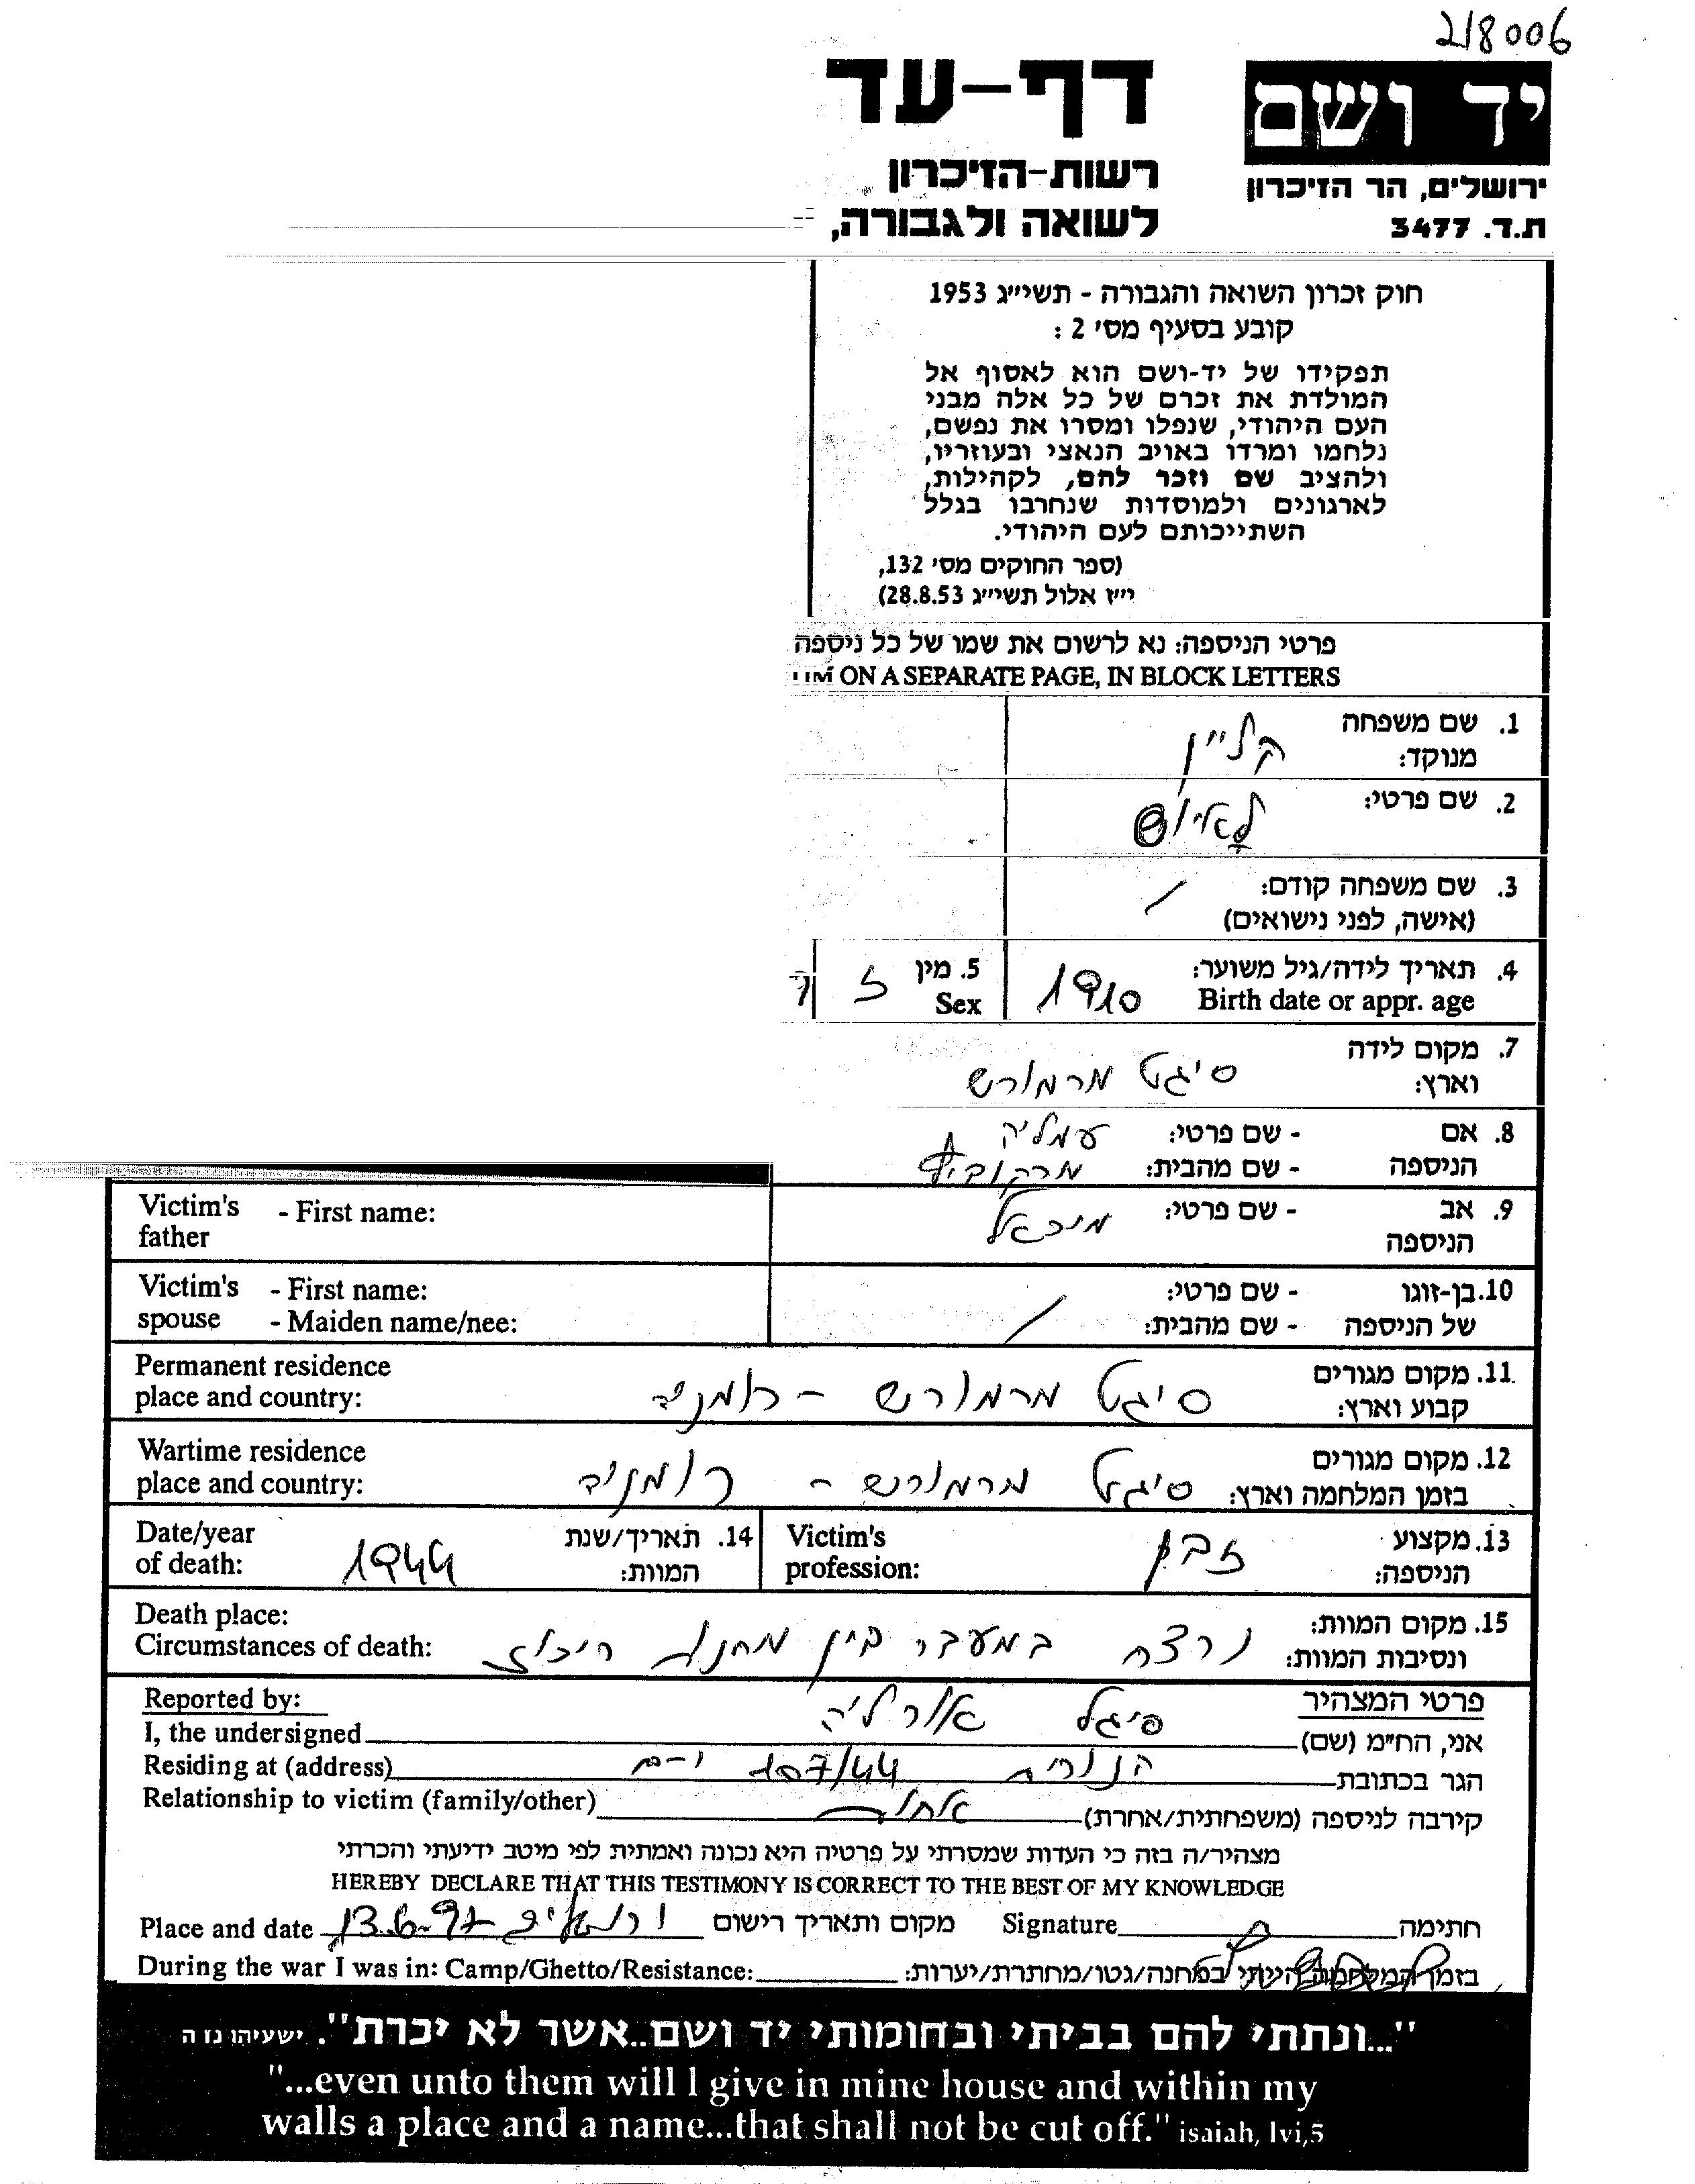 218006
יד ושם
ירושלים, הר הזיכרון
ת.ד. 3477
דף-עד
רשות-הזיכרון
לשואה ולגבורה,
חוק זכרון השואה והגבורה - תשי״ג 1953
קובע בסעיף מס׳ 2 :
תפקידו של יד-ושם הוא לאסוף אל
המולדת את זכרם של כל אלה מבני
העם היהודי, שנפלו ומסרו את נפשם,
נלחמו ומרדו באויב הנאצי ובעוזריו,
ולהציב שם וזכר להם, לקהילות,
לארגונים ולמוסדות שנחרבו בגלל
השתייכותם לעם היהודי.
(ספר החוקים מס׳ 132,
י״ז אלול תשי״ג 28.8.53)
פרטי הניספה: נא לרשום את שמו של כל ניספה
TIM ON A SEPARATE PAGE, IN BLOCK LETTERS
1. שם משפחה קליין
מנוקד:
2. שם פרטי: לאיוש
3. שם משפחה קודם: /
(אישה, לפני נישואים)
4. תאריך לידה/גיל משוער: 1910 5. מין ז
Birth date or appr. age Sex
7. מקום לידה סיגט מרמורש
וארץ:
8. אם - שם פרטי: עמליה
הניספה - שם מהבית: מרקוביץ
9. אב - שם פרטי: מיכאל Victim's - First name:
הניספה father
10. בן-זוגו - שם פרטי: / Victim's - First name:
של הניספה - שם מהבית: spouse - Maiden name/nee:
11. מקום מגורים סיגט מרמורש - רומניה Permanent residence
קבוע וארץ: place and country:
12. מקום מגורים סיגט מרמורש - רומניה Wartime residence
בזמן המלחמה וארץ: place and country:
13. מקצוע זבן Victim's 14. תאריך/שנת 1944 Date/year
הניספה: profession: המוות: of death:
15. מקום המוות: נרצח במעבר בין מחנות ריכוז Death place:
ונסיבות המוות: Circumstances of death:
פרטי המצהיר Reported by:
אני, הח״מ (שם) סיגל אורליה I, the undersigned
הגר בכתובת הנורית 107/44 י-ם Residing at (address)
קירבה לניספה (משפחתית/אחרת) אחות Relationship to victim (family/other)
מצהיר/ה בזה כי העדות שמסרתי על פרטיה היא נכונה ואמתית לפי מיטב ידיעתי והכרתי
HEREBY DECLARE THAT THIS TESTIMONY IS CORRECT TO THE BEST OF MY KNOWLEDGE
חתימה Signature מקום ותאריך רישום 13.6.97 Place and date
בזמן המלחמה הייתי במחנה/גטו/מחתרת/יערות: During the war I was in: Camp/Ghetto/Resistance:
"...ונתתי להם בביתי ובחומותי יד ושם..אשר לא יכרת". ישעיהו נז ה
"...even unto them will I give in mine house and within my
walls a place and a name...that shall not be cut off." isaiah, lvi,5